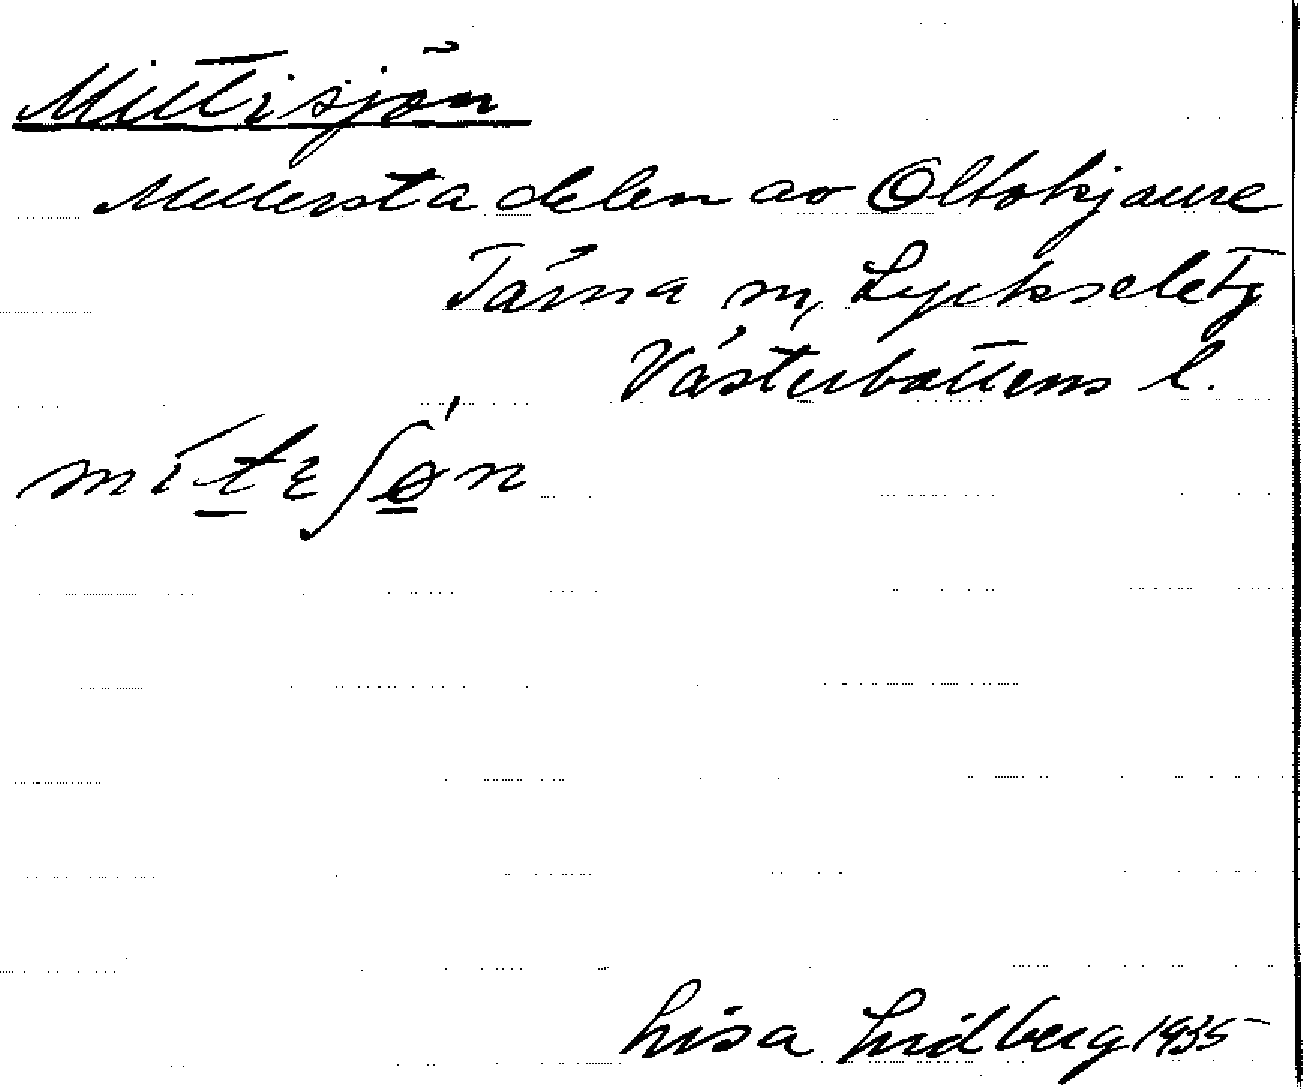 Mittisjön
Mellersta delen av Oltokjaure
Tärna sn, Lycksele tg
Västerbottens l.
mítɛʃøn
Lisa Lidberg 1935